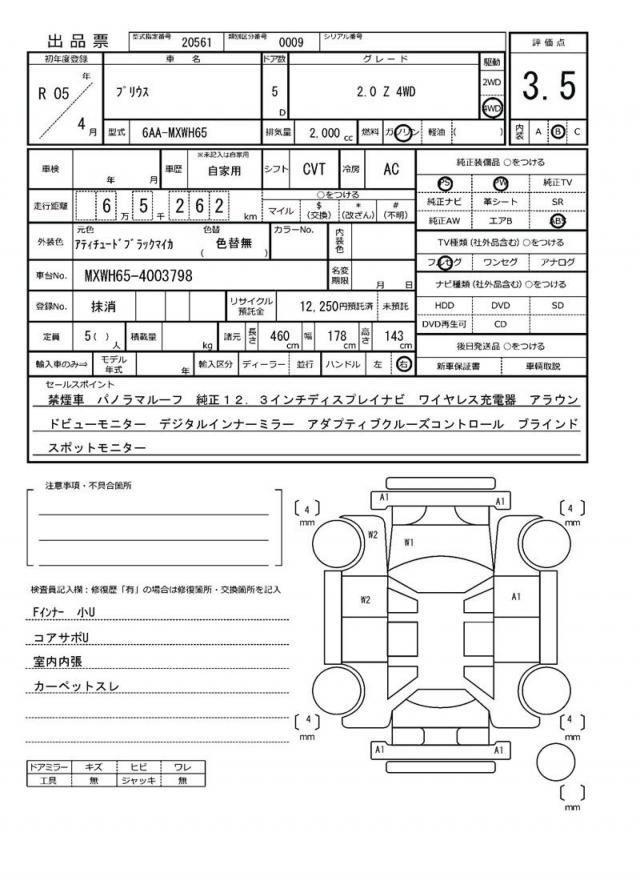 出品票
型式指定番号 20561 類別区分番号 0009 シリアル番号
評価点
3.5
内装 A B C
初年度登録 車名 ドア数 グレード 駆動
R 05 年 4 月
プリウス 5 D 2.0 Z 4WD 2WD 4WD
型式 6AA-MXWH65 排気量 2,000 cc 燃料 ガソリン 軽油 ( )
車検 年 月 車歴 ※未記入は自家用 自家用 シフト CVT 冷房 AC
走行距離 6 5 万 千 2 6 2 km
○をつける
マイル $ (交換) * (改ざん) # (不明)
外装色 元色 アティチュードブラックマイカ 色替 ( 色替無 ) カラーNo. 内装色
車台No. MXWH65-4003798 名変期限 月 日
登録No. 抹消 リサイクル預託金 12,250円預託済 未預託
定員 5( ) 人 積載量 kg 諸元 長さ 460 cm 幅 178 cm 高さ 143 cm
輸入車のみ⇒ モデル年式 年 輸入区分 ディーラー 並行 ハンドル 左 右
純正装備品 ○をつける
PS PW 純正TV
純正ナビ 革シート SR
純正AW エアB ABS
TV種類(社外品含む)○をつける
フルセグ ワンセグ アナログ
ナビ種類(社外品含む)○をつける
HDD DVD SD
DVD再生可 CD
後日発送品 ○をつける
新車保証書 車輌取説
セールスポイント
禁煙車 パノラマルーフ 純正12.3インチディスプレイナビ ワイヤレス充電器 アラウン
ドビューモニター デジタルインナーミラー アダプティブクルーズコントロール ブラインド
スポットモニター
注意事項・不具合箇所
検査員記入欄:修復歴「有」の場合は修復箇所・交換箇所を記入
Fインナー 小U
コアサポU
室内内張
カーペットスレ
ドアミラー キズ ヒビ ワレ
工具 無 ジャッキ 無
A1 A1
4 mm 4 mm
W2 W1
W2 A1
4 mm 4 mm
A1 A1
mm